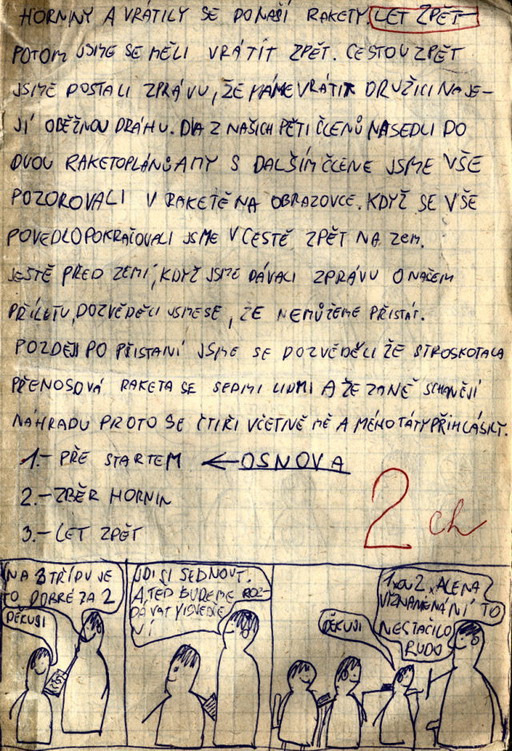 HORNINY A VRÁTILY SE DO NAŠÍ RAKETY. LET ZPĚT
POTOM JSME SE MĚLI VRÁTIT ZPĚT. CESTOU ZPĚT
JSME DOSTALI ZPRÁVU, ŽE MÁME VRÁTIT DRUŽICI NA JE-
JÍ OBĚŽNOU DRÁHU. DVA Z NAŠICH PĚTI ČLENŮ NASEDLI DO
DVOU RAKETOPLÁNŮ A MY S DALŠÍM ČLENE JSME VŠE
POZOROVALI V RAKETĚ NA OBRAZOVCE. KDYŽ SE VŠE
POVEDLO POKRAČOVALI JSME V CESTĚ ZPĚT NA ZEM.
JEŠTĚ PŘED ZEMÍ, KDYŽ JSME DÁVALI ZPRÁVU O NAŠEM
PŘÍLETU, DOZVĚDĚLI JSME SE, ŽE NEMŮŽEME PŘISTÁT.
POZDĚJI PO PŘISTANÍ JSME SE DOZVĚDĚLI ŽE STROSKOTALA
PŘENOSOVÁ RAKETA SE SEDMI LIDMI A ŽE ZA NĚ SCHÁNĚJÍ
NÁHRADU PROTO SE ČTIŘI VČETNĚ MĚ A MÉHO TÁTY PŘIHLÁSILY.
1.- PŘE STARTEM ← OSNOVA
2.- ZBĚR HORNIN
3.- LET ZPĚT
2 ch
NA 3 TŘÍDU JE
TO DOBRÉ ZA 2
DĚKUSI
JDI SI SEDNOUT.
A TED BUDEME ROZ-
DÁVAT VISVĚDČE
NÍ
DĚKUJI
1xou 2 x ALENA
VIZNAMENÁNÍ TO
NESTAČILO
RUDO